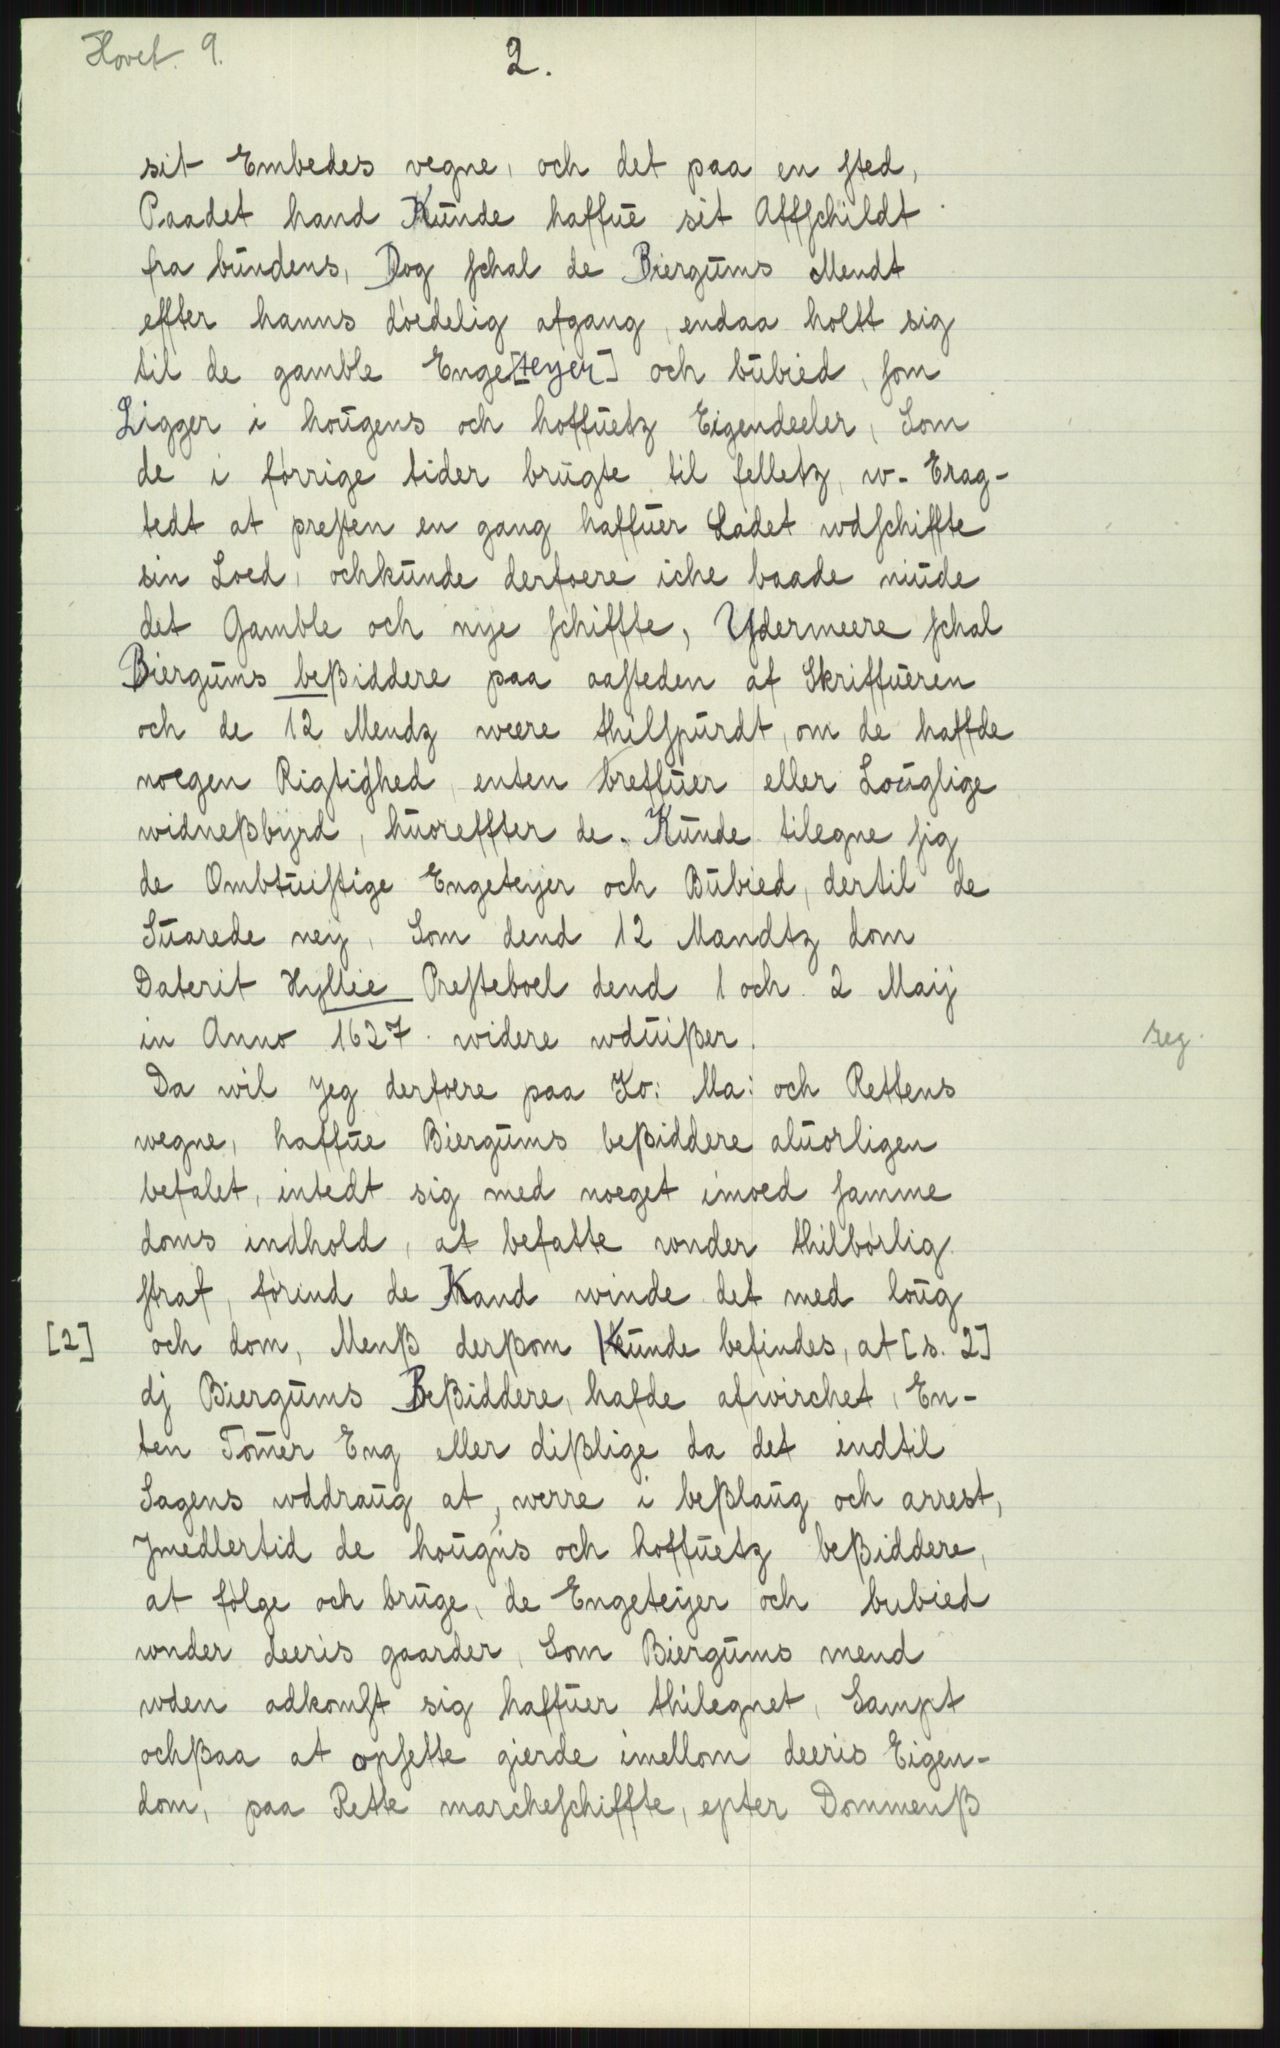 Hovet. 9.
2.
sit Embedes vegne, och det paa en sted,
Paadet hand Kunde haffue sit Affschildt
fra bundens, Dog schal de Biergums Mendt
effter hanns döedelig afgang, endaa holtt sig
til de gamble Enge[teyer] och bubied, som
Ligger i hougens och hoffuetz Eigendeeler, Som
de i förrige tider brugte til felletz, w-Erag-
tedt at presten en gang haffuer Ladet wdschiffte
sin Loed, ochkunde derfoere iche baade niude
det Gamble och nye schiffte, Ydermeere schal
Biergums beßiddere paa aasteden af Skriffueren
och de 12 Mendz were thilspurdt, om de haffde
noegen Rigtighed, enten breffuer eller Louglige
widneßbyrd, huoreffter de Kunde tilegne sig
de Ombtuistige Engeteyer och Bubied, dertil de
Suarede ney, Som dend 12 Mandtz dom
Daterit Hyllie Presteboel dend 1 och 2 Maij
in Anno 1627 widere wduißer.
reg.
Da wil Jeg derfoere paa Ko: Ma: och Rettens
wegne, haffue Biergums beßiddere aluorligen
befalet, intedt sig med noeget imoed samme
doms indhold, at befatte wnder thilbörlig
straf, förind de Kand winde det med loug
[2] och dom, Menß derßom Kunde befindes, at [s. 2]
dj Biergums Beßiddere, hafde afwirchet, En-
ten Tömer Eng eller dißlige da det indtil
Sagens wddraug at, werre i beßlaug och arrest,
Jmedlertid de hougns och hoffuetz beßiddere,
at fölge och bruge, de Engeteyer och bubied
wnder deeris gaarder, Som Biergums mend
wden adkomst sig haffuer thilegnet, Sampt
ochßaa at opsette gierde imellom deeris Eigen-
dom, paa Rette marcheschiffte, epter Dommenß